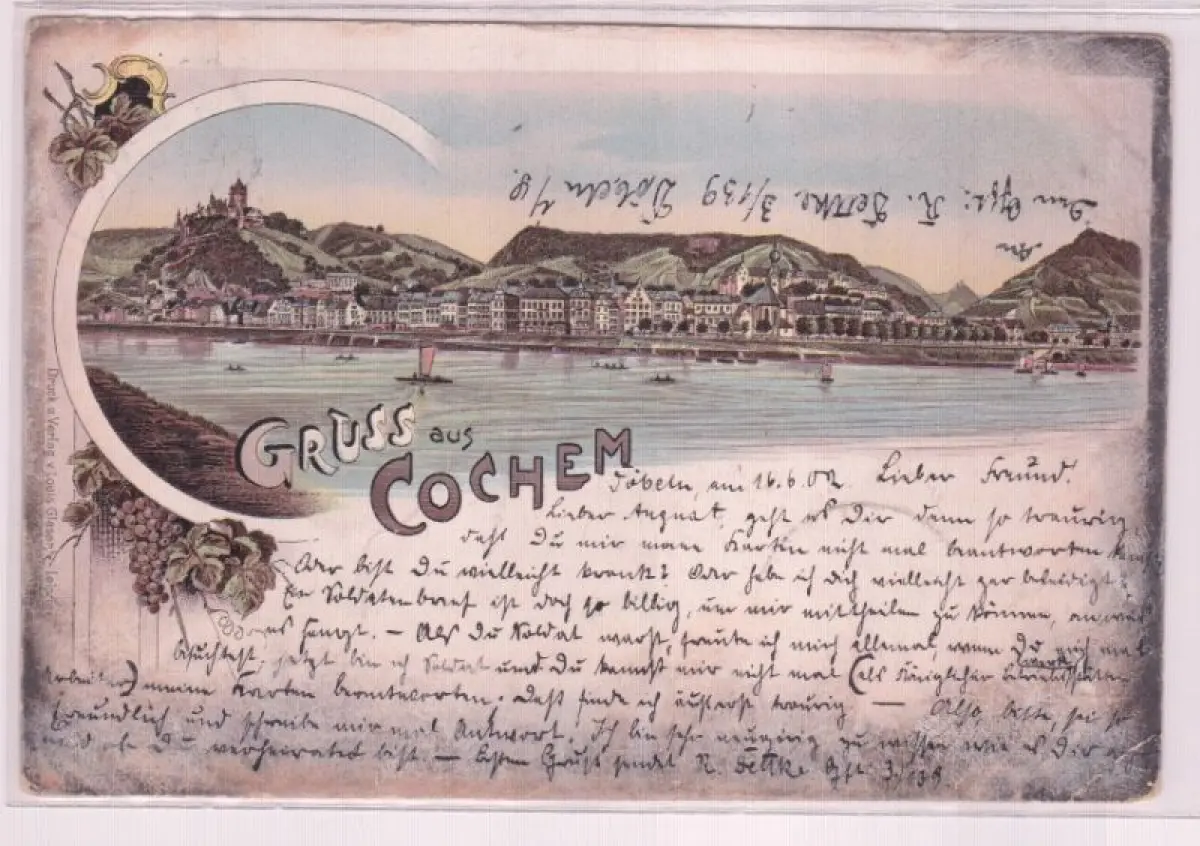 An
den Gfr. R. Bettke 3/139 Döbeln i/S.
GRUSS aus
COCHEM
Druck u. Verlag v. Louis Glaser, Leipzig
Döbeln, am 16.6.02. Lieber Freund!
Lieber August, geht es Dir denn so traurig,
daß Du mir meine Karten nicht mal beantworten kannst
Oder bist Du vielleicht krank? Oder habe ich Dich vielleicht gar beleidigt?
Ein Soldatenbrief ist doch so billig, um mir mittheilen zu können, an was
es hängt. – Als Du Soldat warst, freute ich mich allemal, wenn Du mich mal
besuchtest, jetzt bin ich Soldat und Du kannst mir nicht mal (als Königlicher Betriebsstätten
Arbeiter) meine Karten beantworten. Daß finde ich äußerst traurig. — Also bitte, sei so
freundlich und schreibe mir mal Antwort. Ich bin sehr neugierig zu wissen wie es Dir
und ob Du verheiratet bist. — Besten Gruß sendet R. Bettke Gfr. 3/139.